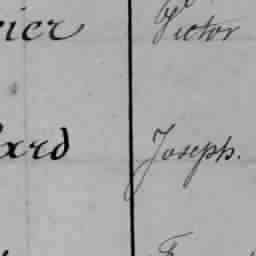 rier Victor
ard Joseph.